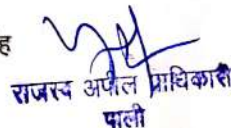 ह
राजस्व अपील प्राधिकारी
पाली